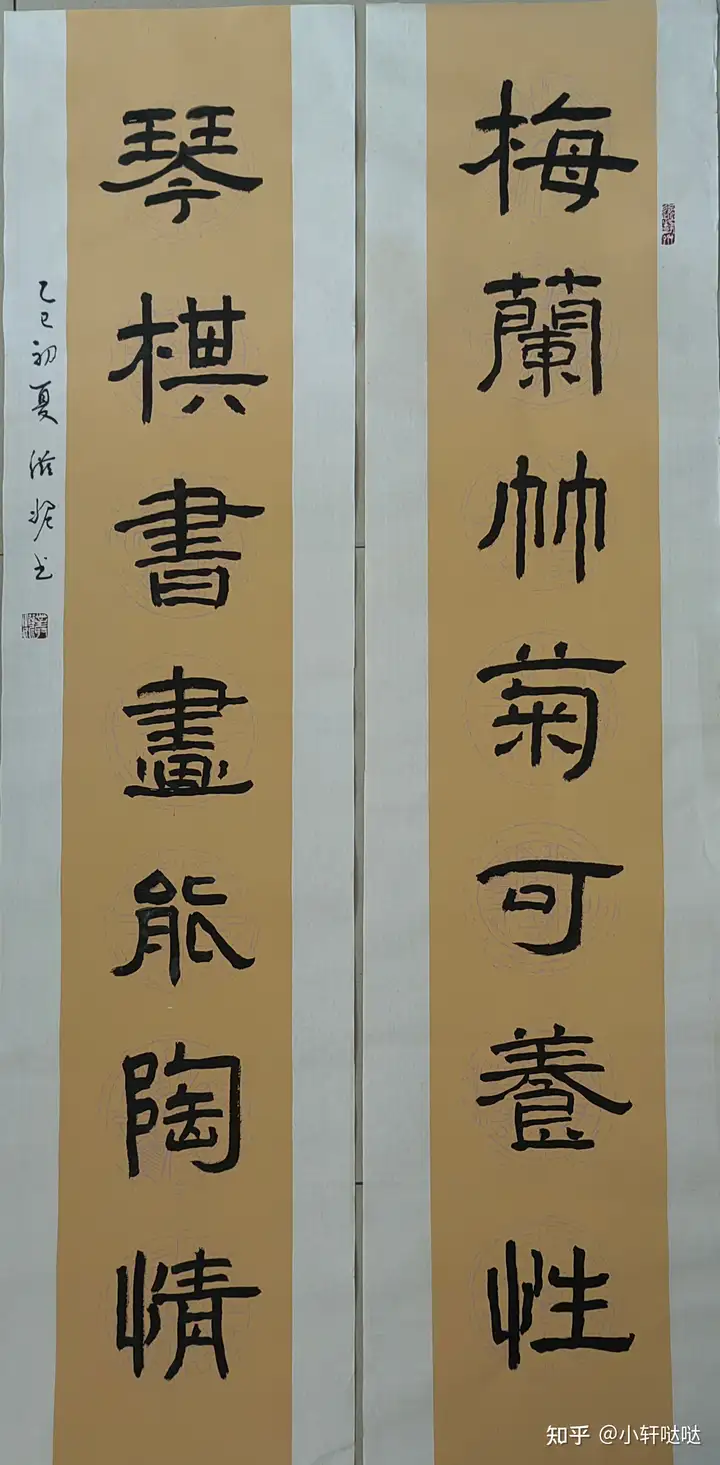 梅蘭竹菊可養性
琴棋書畫能陶情
乙巳初夏
知乎 @小轩哒哒